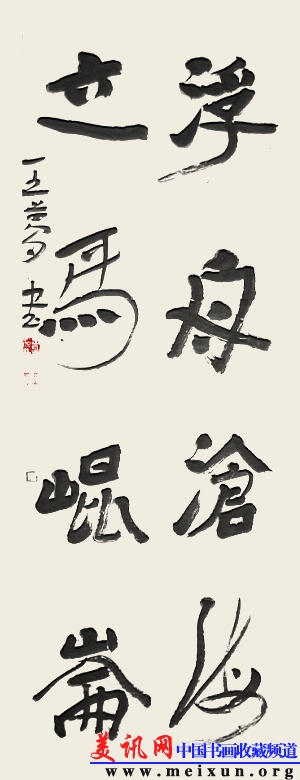 浮舟滄海
立馬崑崙
書
美讯网 中国书画收藏频道
www.meixun.org